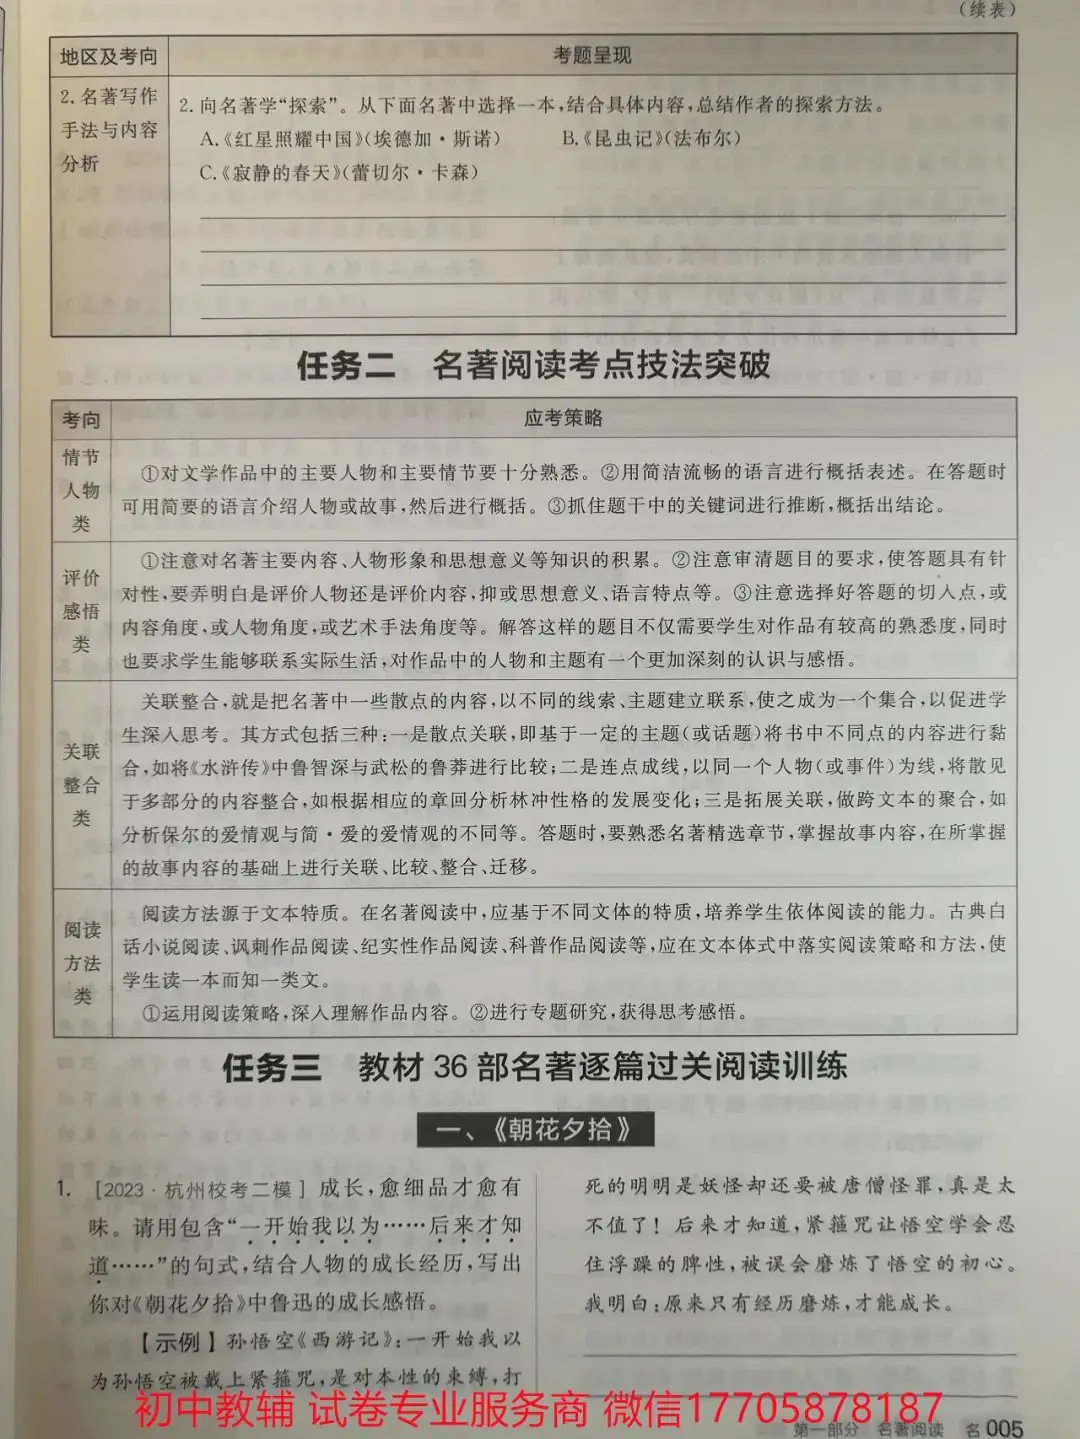 （续表）
地区及考向 考题呈现
2. 名著写作
手法与内容
分析
2. 向名著学“探索”。从下面名著中选择一本,结合具体内容,总结作者的探索方法。
A.《红星照耀中国》(埃德加·斯诺) B.《昆虫记》(法布尔)
C.《寂静的春天》(蕾切尔·卡森)
任务二 名著阅读考点技法突破
考向 应考策略
情节
人物
类
①对文学作品中的主要人物和主要情节要十分熟悉。②用简洁流畅的语言进行概括表述。在答题时
可用简要的语言介绍人物或故事,然后进行概括。③抓住题干中的关键词进行推断,概括出结论。
评价
感悟
类
①注意对名著主要内容、人物形象和思想意义等知识的积累。②注意审清题目的要求,使答题具有针
对性,要弄明白是评价人物还是评价内容,抑或思想意义、语言特点等。③注意选择好答题的切入点,或
内容角度,或人物角度,或艺术手法角度等。解答这样的题目不仅需要学生对作品有较高的熟悉度,同时
也要求学生能够联系实际生活,对作品中的人物和主题有一个更加深刻的认识与感悟。
关联
整合
类
关联整合,就是把名著中一些散点的内容,以不同的线索、主题建立联系,使之成为一个集合,以促进学
生深入思考。其方式包括三种:一是散点关联,即基于一定的主题(或话题)将书中不同点的内容进行黏
合,如将《水浒传》中鲁智深与武松的鲁莽进行比较;二是连点成线,以同一个人物(或事件)为线,将散见
于多部分的内容整合,如根据相应的章回分析林冲性格的发展变化;三是拓展关联,做跨文本的聚合,如
分析保尔的爱情观与简·爱的爱情观的不同等。答题时,要熟悉名著精选章节,掌握故事内容,在所掌握
的故事内容的基础上进行关联、比较、整合、迁移。
阅读
方法
类
阅读方法源于文本特质。在名著阅读中,应基于不同文体的特质,培养学生依体阅读的能力。古典白
话小说阅读、讽刺作品阅读、纪实性作品阅读、科普作品阅读等,应在文本体式中落实阅读策略和方法,使
学生读一本而知一类文。
①运用阅读策略,深入理解作品内容。②进行专题研究,获得思考感悟。
任务三 教材 36 部名著逐篇过关阅读训练
一、《朝花夕拾》
1. [2023·杭州校考二模] 成长,愈细品才愈有
味。请用包含“一开始我以为……后来才知
道……”的句式,结合人物的成长经历,写出
你对《朝花夕拾》中鲁迅的成长感悟。
【示例】孙悟空《西游记》:一开始我以
为孙悟空被戴上紧箍咒,是对本性的束缚,打
死的明明是妖怪却还要被唐僧怪罪,真是太
不值了! 后来才知道,紧箍咒让悟空学会忍
住浮躁的脾性,被误会磨炼了悟空的初心。
我明白:原来只有经历磨炼,才能成长。
初中教辅 试卷专业服务商 微信17705878187
第一部分 名著阅读 名 005